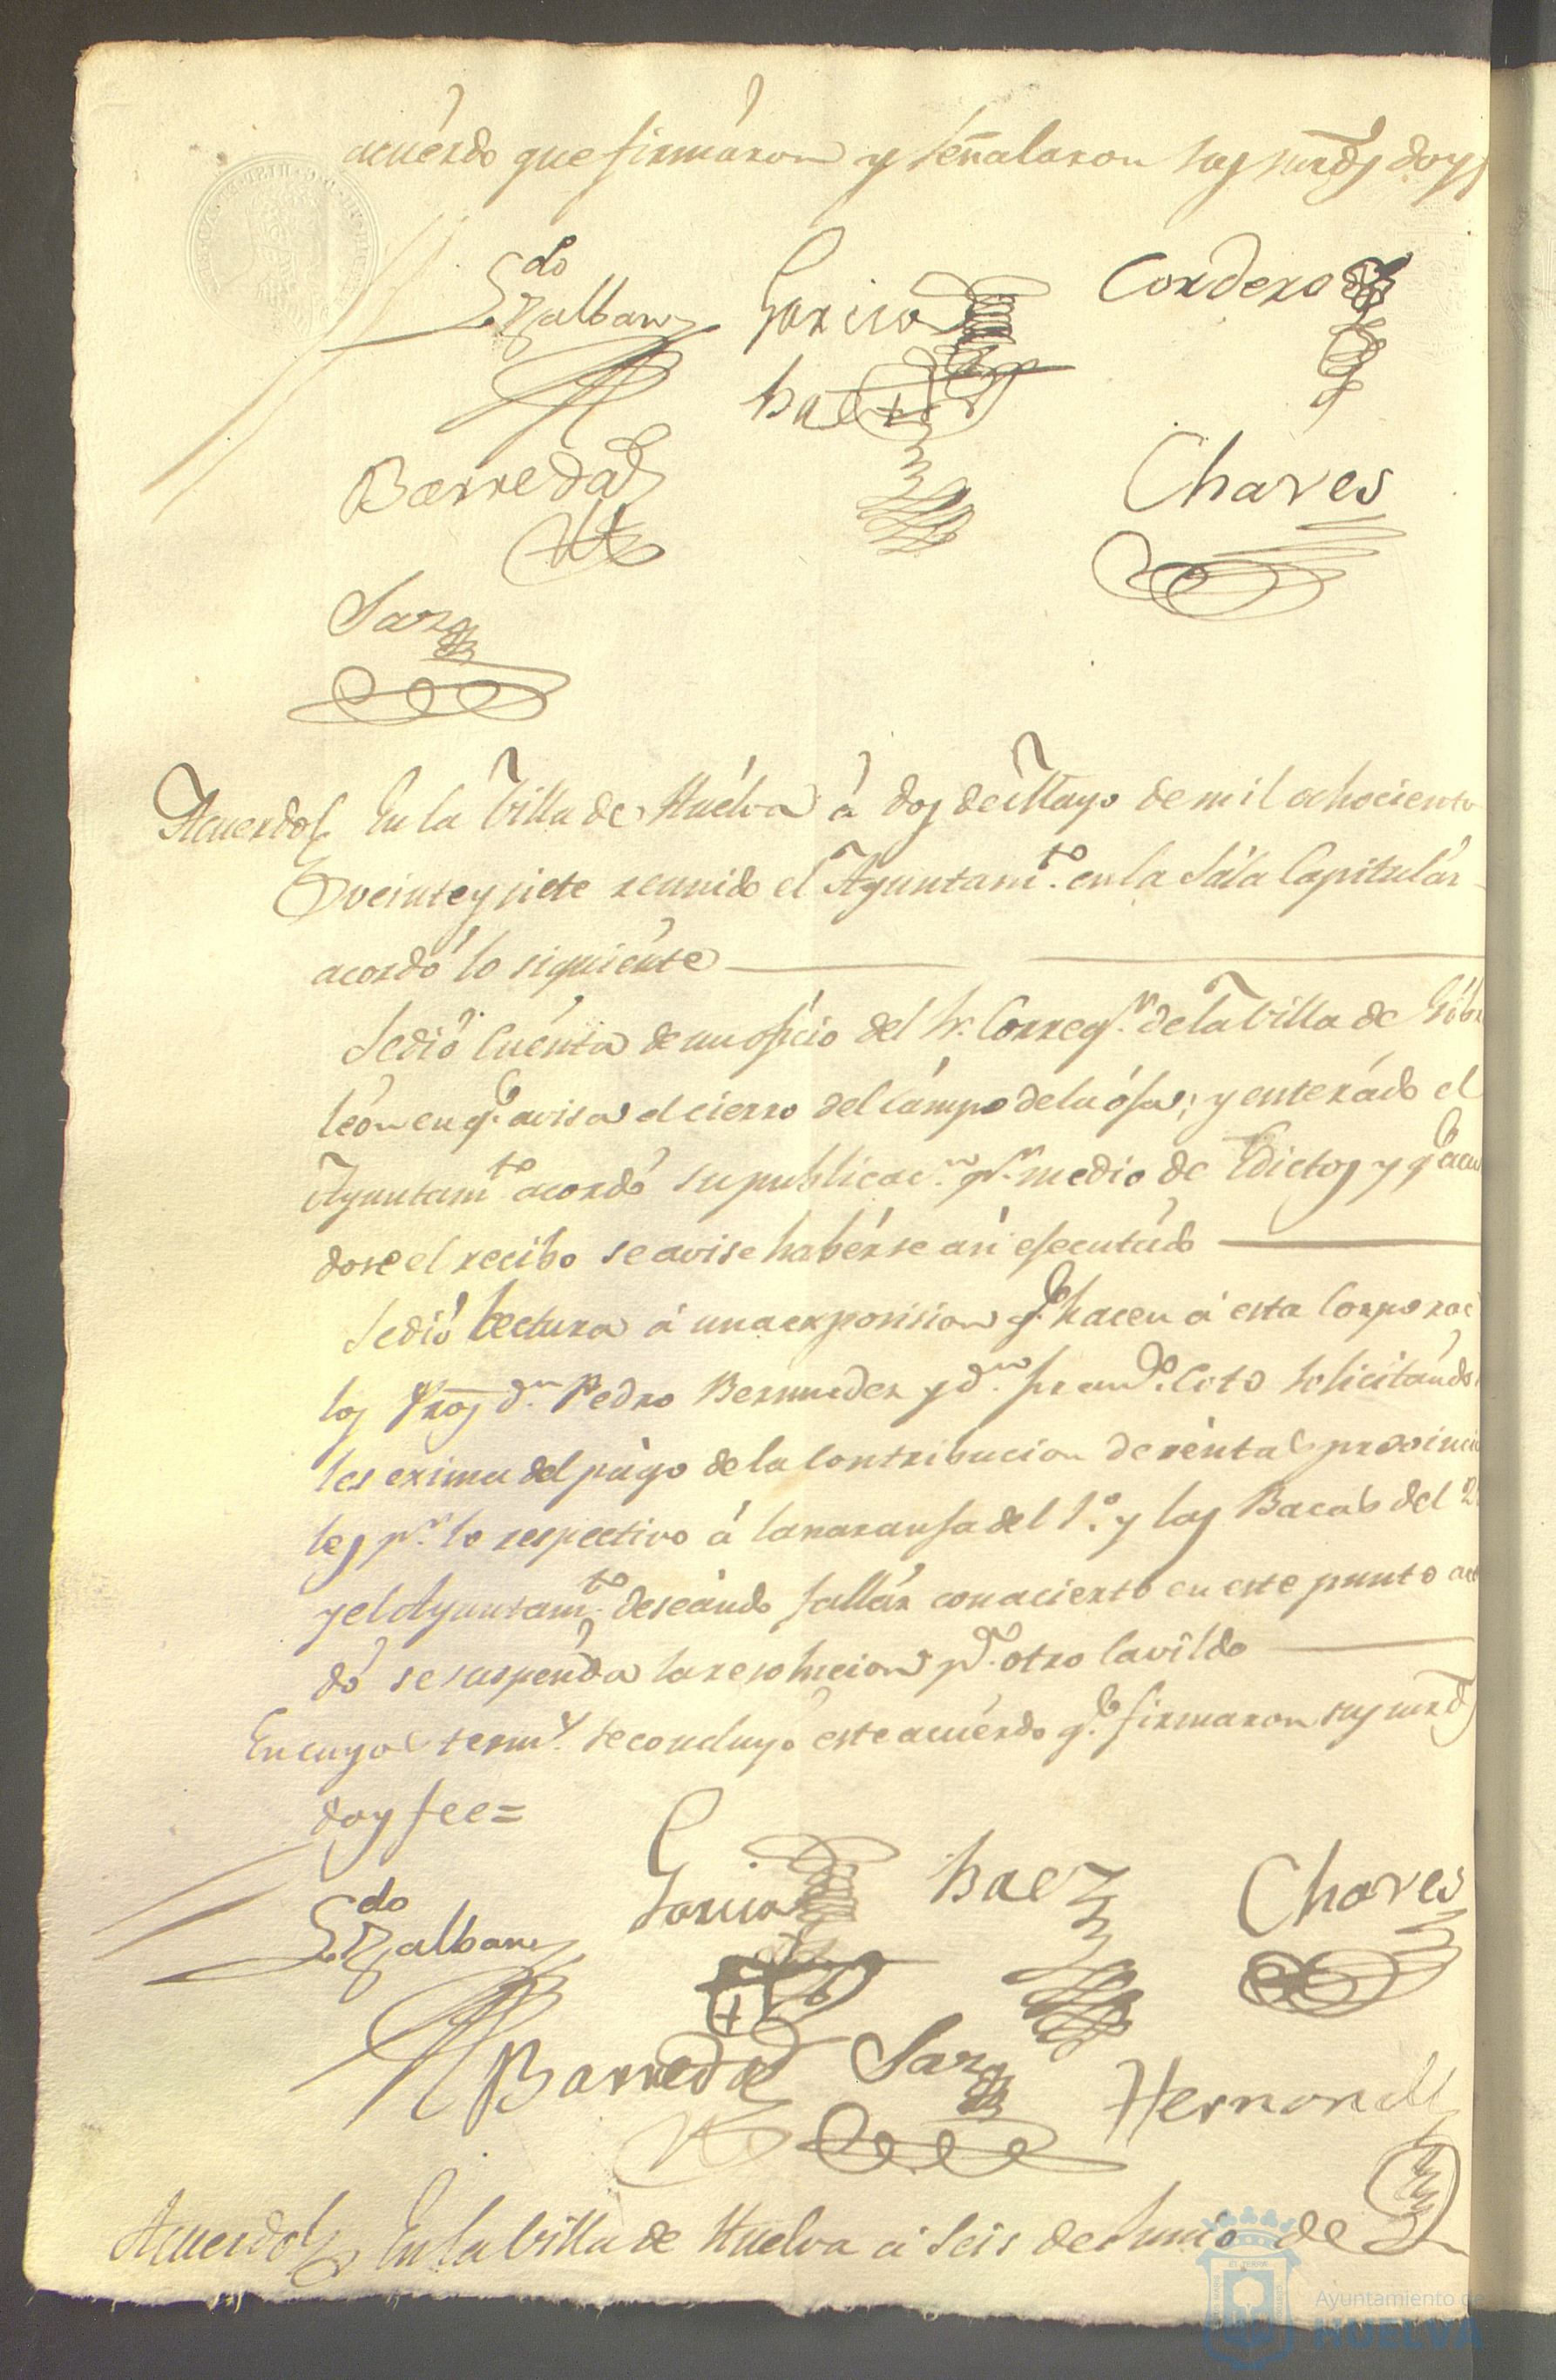 acuérdo que firmáron y señalaron sus mrds doy
Ldo
Garcia
Cordero
Baez
Barreda
Chaves
Acuerdo En la Villa de Huélva á dos de Mayo de mil ochociento
veinte y siete reunido el Ayuntamto. en la Sála Capitulár
acordó lo siguiénte
Se dió Cuénta de un oficio del Sr. Corregr. de la villa de Gibr
león en qe. avisa el cierro del Cámpo de la ósa; y enterádo el
Ayuntamto acordó su publicacn. pr. medio de Edictos y qe acu
dose el recibo se avise habérse asi efecutádo
Se dió lectura á una exposision qe. hacen á esta Corporac
los Pros dn. Pedro Bermudez y dn. Francco. Coto solicitándo
les exima del págo de la Contribucion de réntas provincia
les pr. lo respectivo á la naranja del 1o. y las Bacas del 2
y el Ayuntamto. deseándo fallár con acierto en este punto acor
dó se suspénda la resolucion pa. otro Cavildo
En cuyos termos. se concluyó este acuérdo qe. firmaron sus mrds
doy fee=
Ldo
Garcia
Baez
Chaves
Barreda
Hernand
Acuerdo En la villa de Huelva á Seis de Junio de
Ayuntamiento de
HUELVA